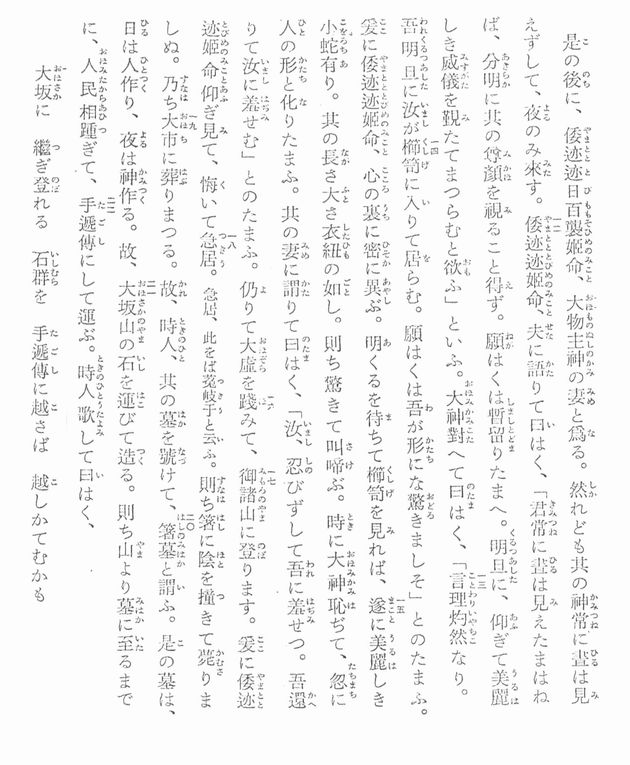 是の後に、倭迹迹日百襲姫命、大物主神の妻と爲る。然れども其の神常に晝は見
えずして、夜のみ來す。倭迹迹姫命、夫に語りて曰はく、「君常に晝は見えたまはね
ば、分明に其の尊顏を視ること得ず。願はくは暫留りたまへ。明旦に、仰ぎて美麗
しき威儀を覲たてまつらむと欲ふ」といふ。大神對へて曰はく、「言理灼然なり。
吾明旦に汝が櫛笥に入りて居らむ。願はくは吾が形にな驚きましそ」とのたまふ。
爰に倭迹迹姫命、心の裏に密に異ぶ。明くるを待ちて櫛笥を見れば、遂に美麗しき
小蛇有り。其の長さ大さ衣紐の如し。則ち驚きて叫啼ぶ。時に大神恥ぢて、忽に
人の形と化りたまふ。其の妻に謂りて曰はく、「汝、忍びずして吾に羞せつ。吾還
りて汝に羞せむ」とのたまふ。仍りて大虛を踐みて、御諸山に登ります。爰に倭迹
迹姫命仰ぎ見て、悔いて急居。急居、此をば菟岐于と云ふ。則ち箸に陰を撞きて薨りま
しぬ。乃ち大市に葬りまつる。故、時人、其の墓を號けて、箸墓と謂ふ。是の墓は、
日は人作り、夜は神作る。故、大坂山の石を運びて造る。則ち山より墓に至るまで
に、人民相踵ぎて、手遞傳にして運ぶ。時人歌して曰はく、
大坂に 繼ぎ登れる 石群を 手遞傳に越さば 越しかてむかも